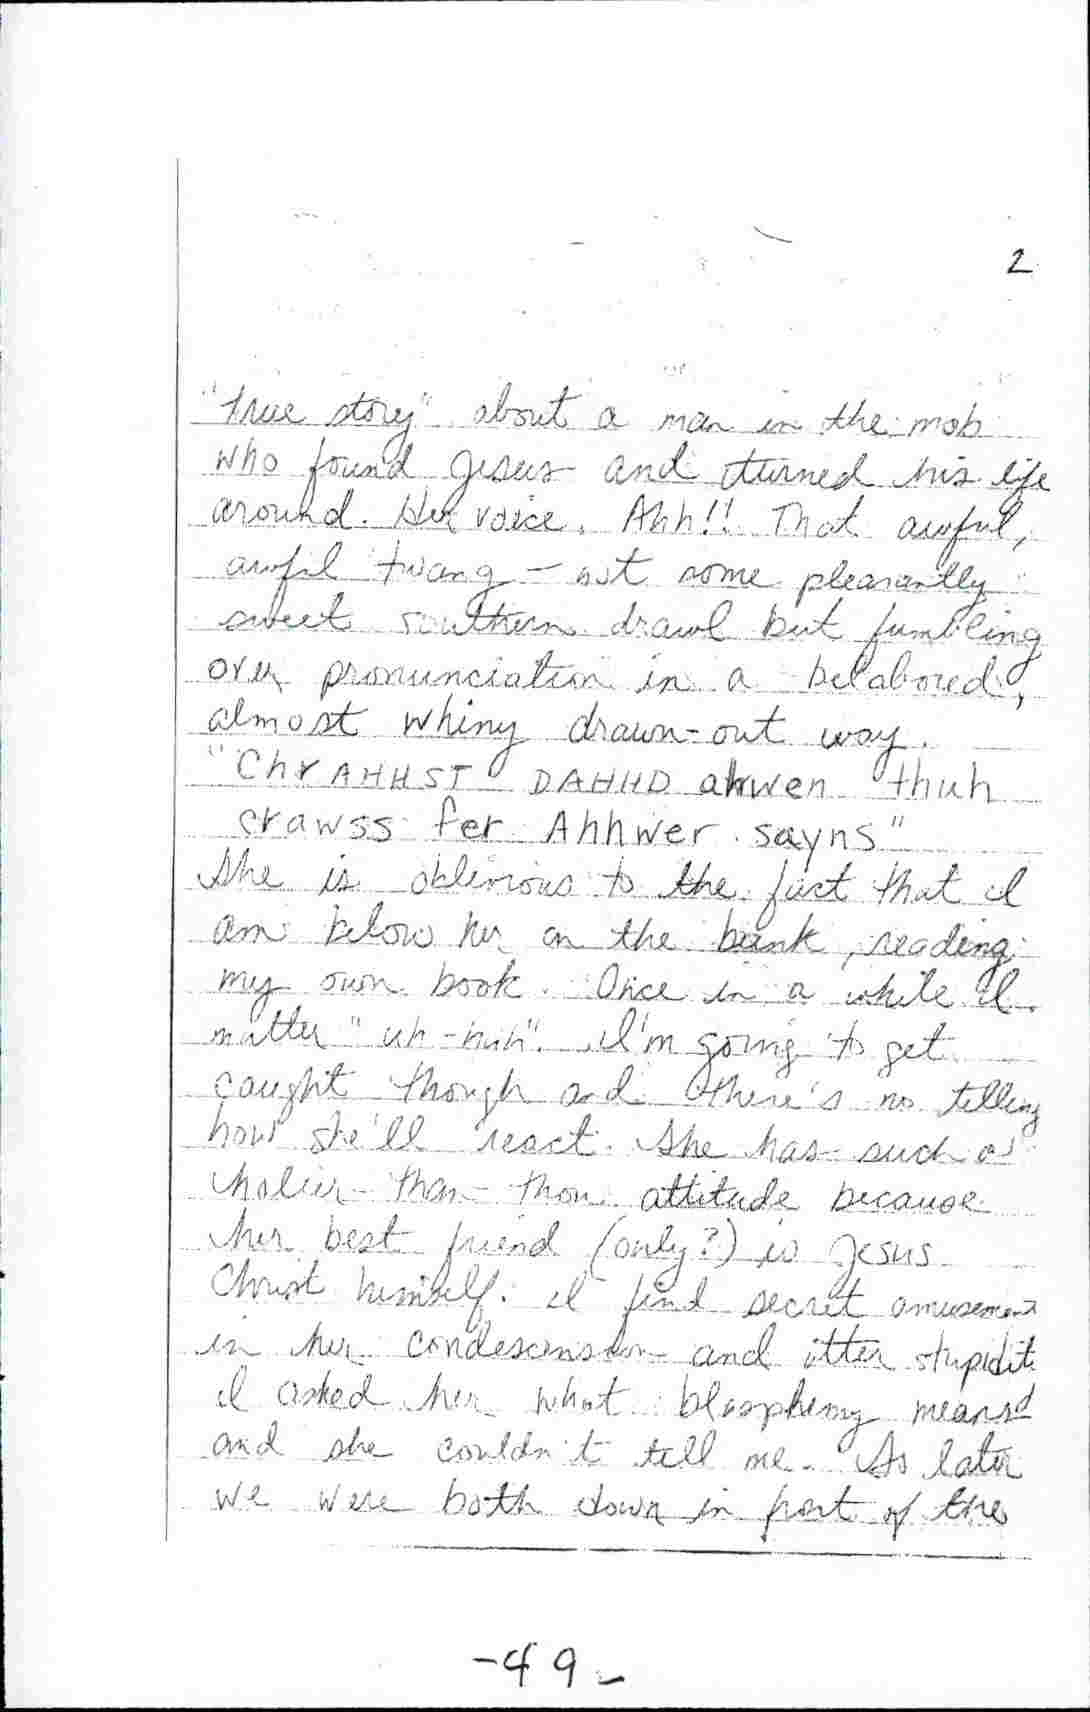 2
"true story" about a man in the mob
who found Jesus and turned his life
around. Her voice. Ahh!! That awful,
awful twang – not some pleasantly
sweet southern drawl but fumbling
over pronunciation in a belabored,
almost whiny drawn-out way.
"ChrAHHST DAHHD ahwen thuh
crawss fer Ahhwer sayns"
She is oblivious to the fact that I
am below her on the bunk, reading
my own book. Once in a while I
mutter "uh-huh". I'm going to get
caught though and there's no telling
how she'll react. She has such a
holier-than-thou attitude because
her best friend (only?) is Jesus
Christ himself. I find secret amusement
in her condescension and utter stupidit
I asked her what blasphemy means
and she couldn't tell me. So later
we were both down in front of the
-49-